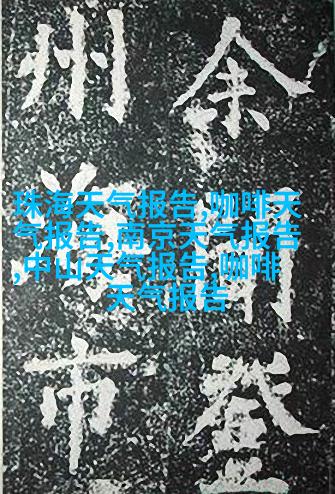 珠海天气报告,咖啡天
气报告,南京天气报告
,中山天气报告,咖啡
天气报告
余登
州市